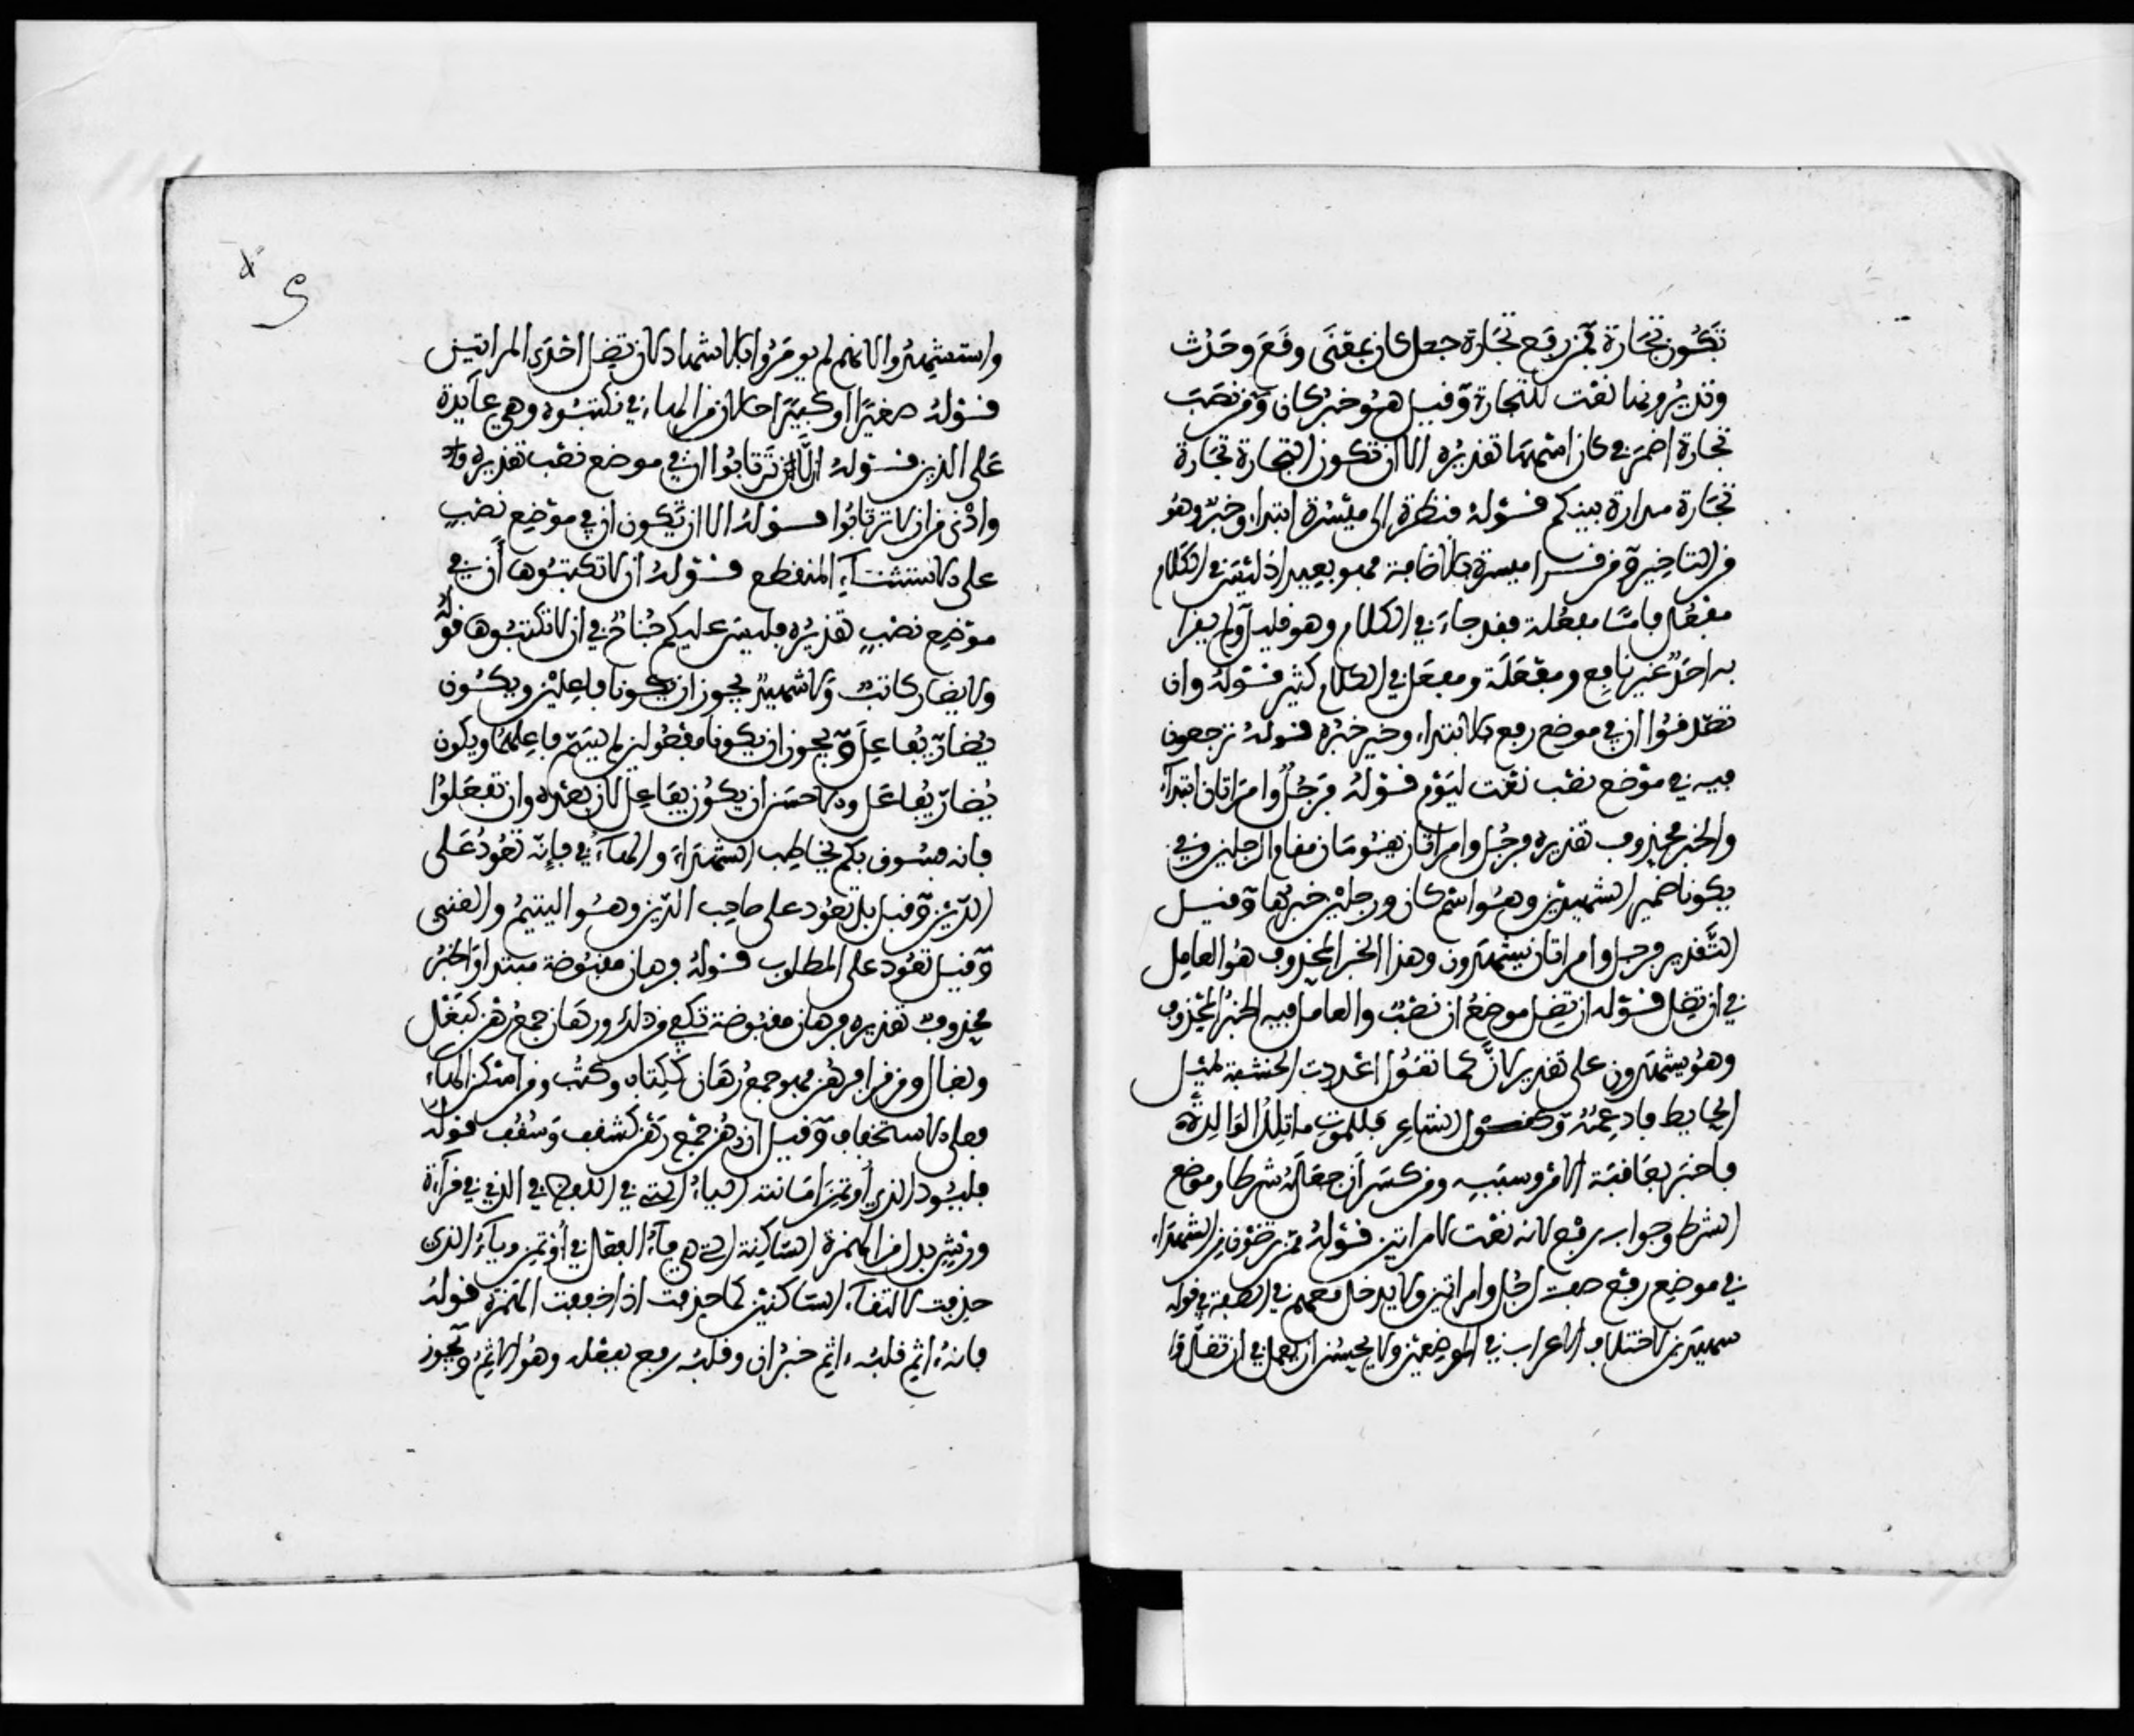 تكون تجارة فمن رفع تجارة جعل كان بمعنى وقع وحدث
وتديرونها نعت للتجارة وقيل هو خبر كان ومن نصب
تجارة اضمر في كان اسمها تقديره الا ان تكون التجارة تجارة
تجارة مدارة بينكم قوله فنظرة الى ميسرة ابتداء وخبر وهو
من التاخير ومن قرا ميسرة بالاضافة فهو بعيد اذ ليس في الكلام
مفعل فاما مفعلة فقد جاء في الكلام وهو قليل ولم يقرا
به احد غير نافع ومفعلة ومفعل في الكلام كثير قوله وان
تصدقوا ان في موضع رفع بالابتداء وخير خبره قوله ترجعون
فيه في موضع نصب نعت ليوم قوله فرجل وامراتان ابتداء
والخبر محذوف تقديره فرجل وامراتان يقومان مقام الرجلين وفي
يكونا ضمير الشهيدين وهو اسم كان ورجلين خبرها وقيل
التقدير فرجل وامراتان يشهدون وهذا الخبر المحذوف هو العامل
في ان تضل قوله ان تضل موضع ان نصب والعامل فيه الخبر المحذوف
وهو يشهدون على تقدير لان كما تقول اعددت الخشبة ليميل
الحايط فادعمه وكقول الشاعر فللموت ما تلد الوالدة
فاخبر بعاقبة الامر وسببه ومن كسر ان جعله شرطا وموضع
الشرط وجوابه رفع لانه نعت لامراتين قوله ممن ترضون من الشهداء
في موضع رفع صفة لرجل وامراتين ولا يدخل معهم في الصفة في قوله
شهيدين لاختلاف الاعراب في الموضعين ولا يحسن ان يعمل في ان تضل
واستشهدوا لانهم لم يومروا بالاشهاد لان تضل احدى المراتين
قوله صغيرا او كبيرا حالان من الهاء في تكتبوه وهي عايدة
على الدين قوله الا ترتابوا ان في موضع نصب تقديره
وادنى من ان لا ترتابوا قوله الا ان تكون ان في موضع نصب
على الاستثناء المنقطع قوله ان لا تكتبوها ان في
موضع نصب تقديره فليس عليكم جناح في ان لا تكتبوها قوله
ولا يضار كاتب ولا شهيد يجوز ان يكونا فاعلين ويكون
يضار يفاعل ويجوز ان يكونا مفعولين لم يسم فاعلهما ويكون
يضار يفاعل والاحسن ان يكون يفاعل لان بعده وان تفعلوا
فانه فسوق بكم يخاطب الشهداء والهاء في فانه تعود على
الدين وقيل بل تعود على صاحب الدين وهو اليتيم والغني
وقيل تعود على المطلوب قوله فرهان مقبوضة مبتدا والخبر
محذوف تقديره فرهان مقبوضة تكفي من ذلك ورهان جمع رهن كبغل
وبغال ومن قرا فرهن فهو جمع رهان ككتاب وكتب ومن اسكن الهاء
فعلى الاستخفاف وقيل ان رهن جمع رهن كسقف وسقف قوله
فليود الذي اوتمن امانته الياء التي في اللفظ في الذي في قراءة
ورش بدل من الهمزة الساكنة التي هي فاء الفعل في اوتمن وياء الذي
حذفت لالتقاء الساكنين كما حذفت اذا خففت الهمزة قوله
فانه ءاثم قلبه ءاثم خبر ان وقلبه رفع بفعله وهو الاثم ويجوز